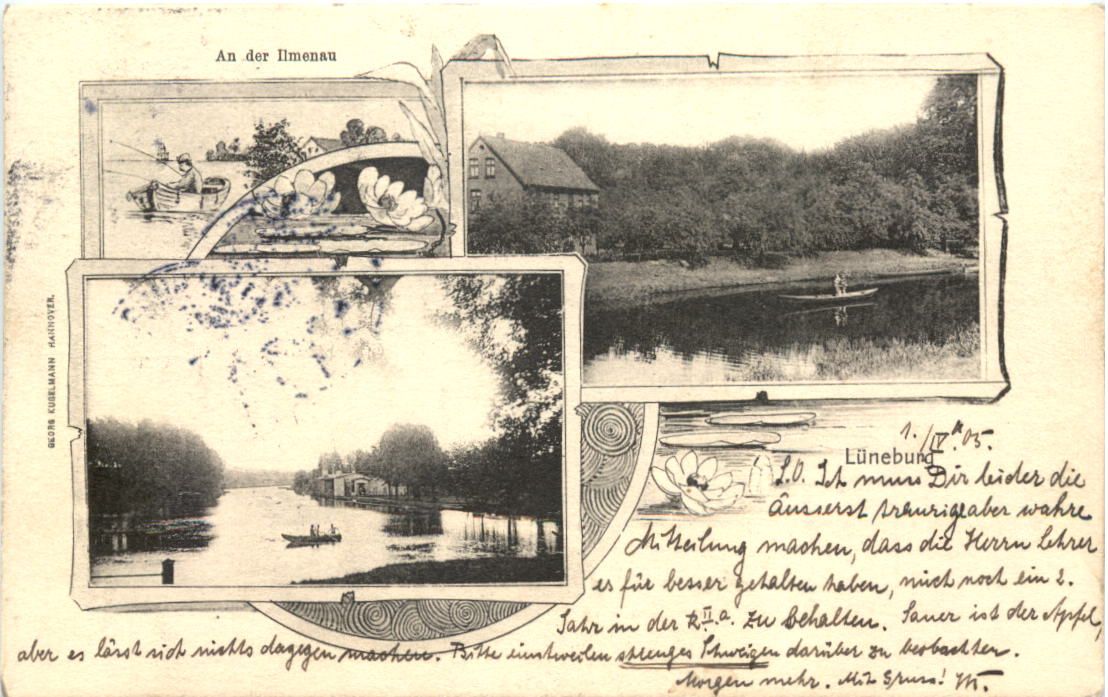 An der Ilmenau
GEORG KUGELMANN HANNOVER.
Lüneburg
1./IV. 05.
L.O. Ich muss Dir leider die
äusserst traurige aber wahre
Mitteilung machen, dass die Herrn Lehrer
es für besser gehalten haben, mich noch ein 2.
Jahr in der II.a. zu behalten. Sauer ist der Apfel,
aber es lässt sich nichts dagegen machen. Bitte einstweilen strenges Schweigen darüber zu beobachten.
Morgen mehr. Mit Gruss!